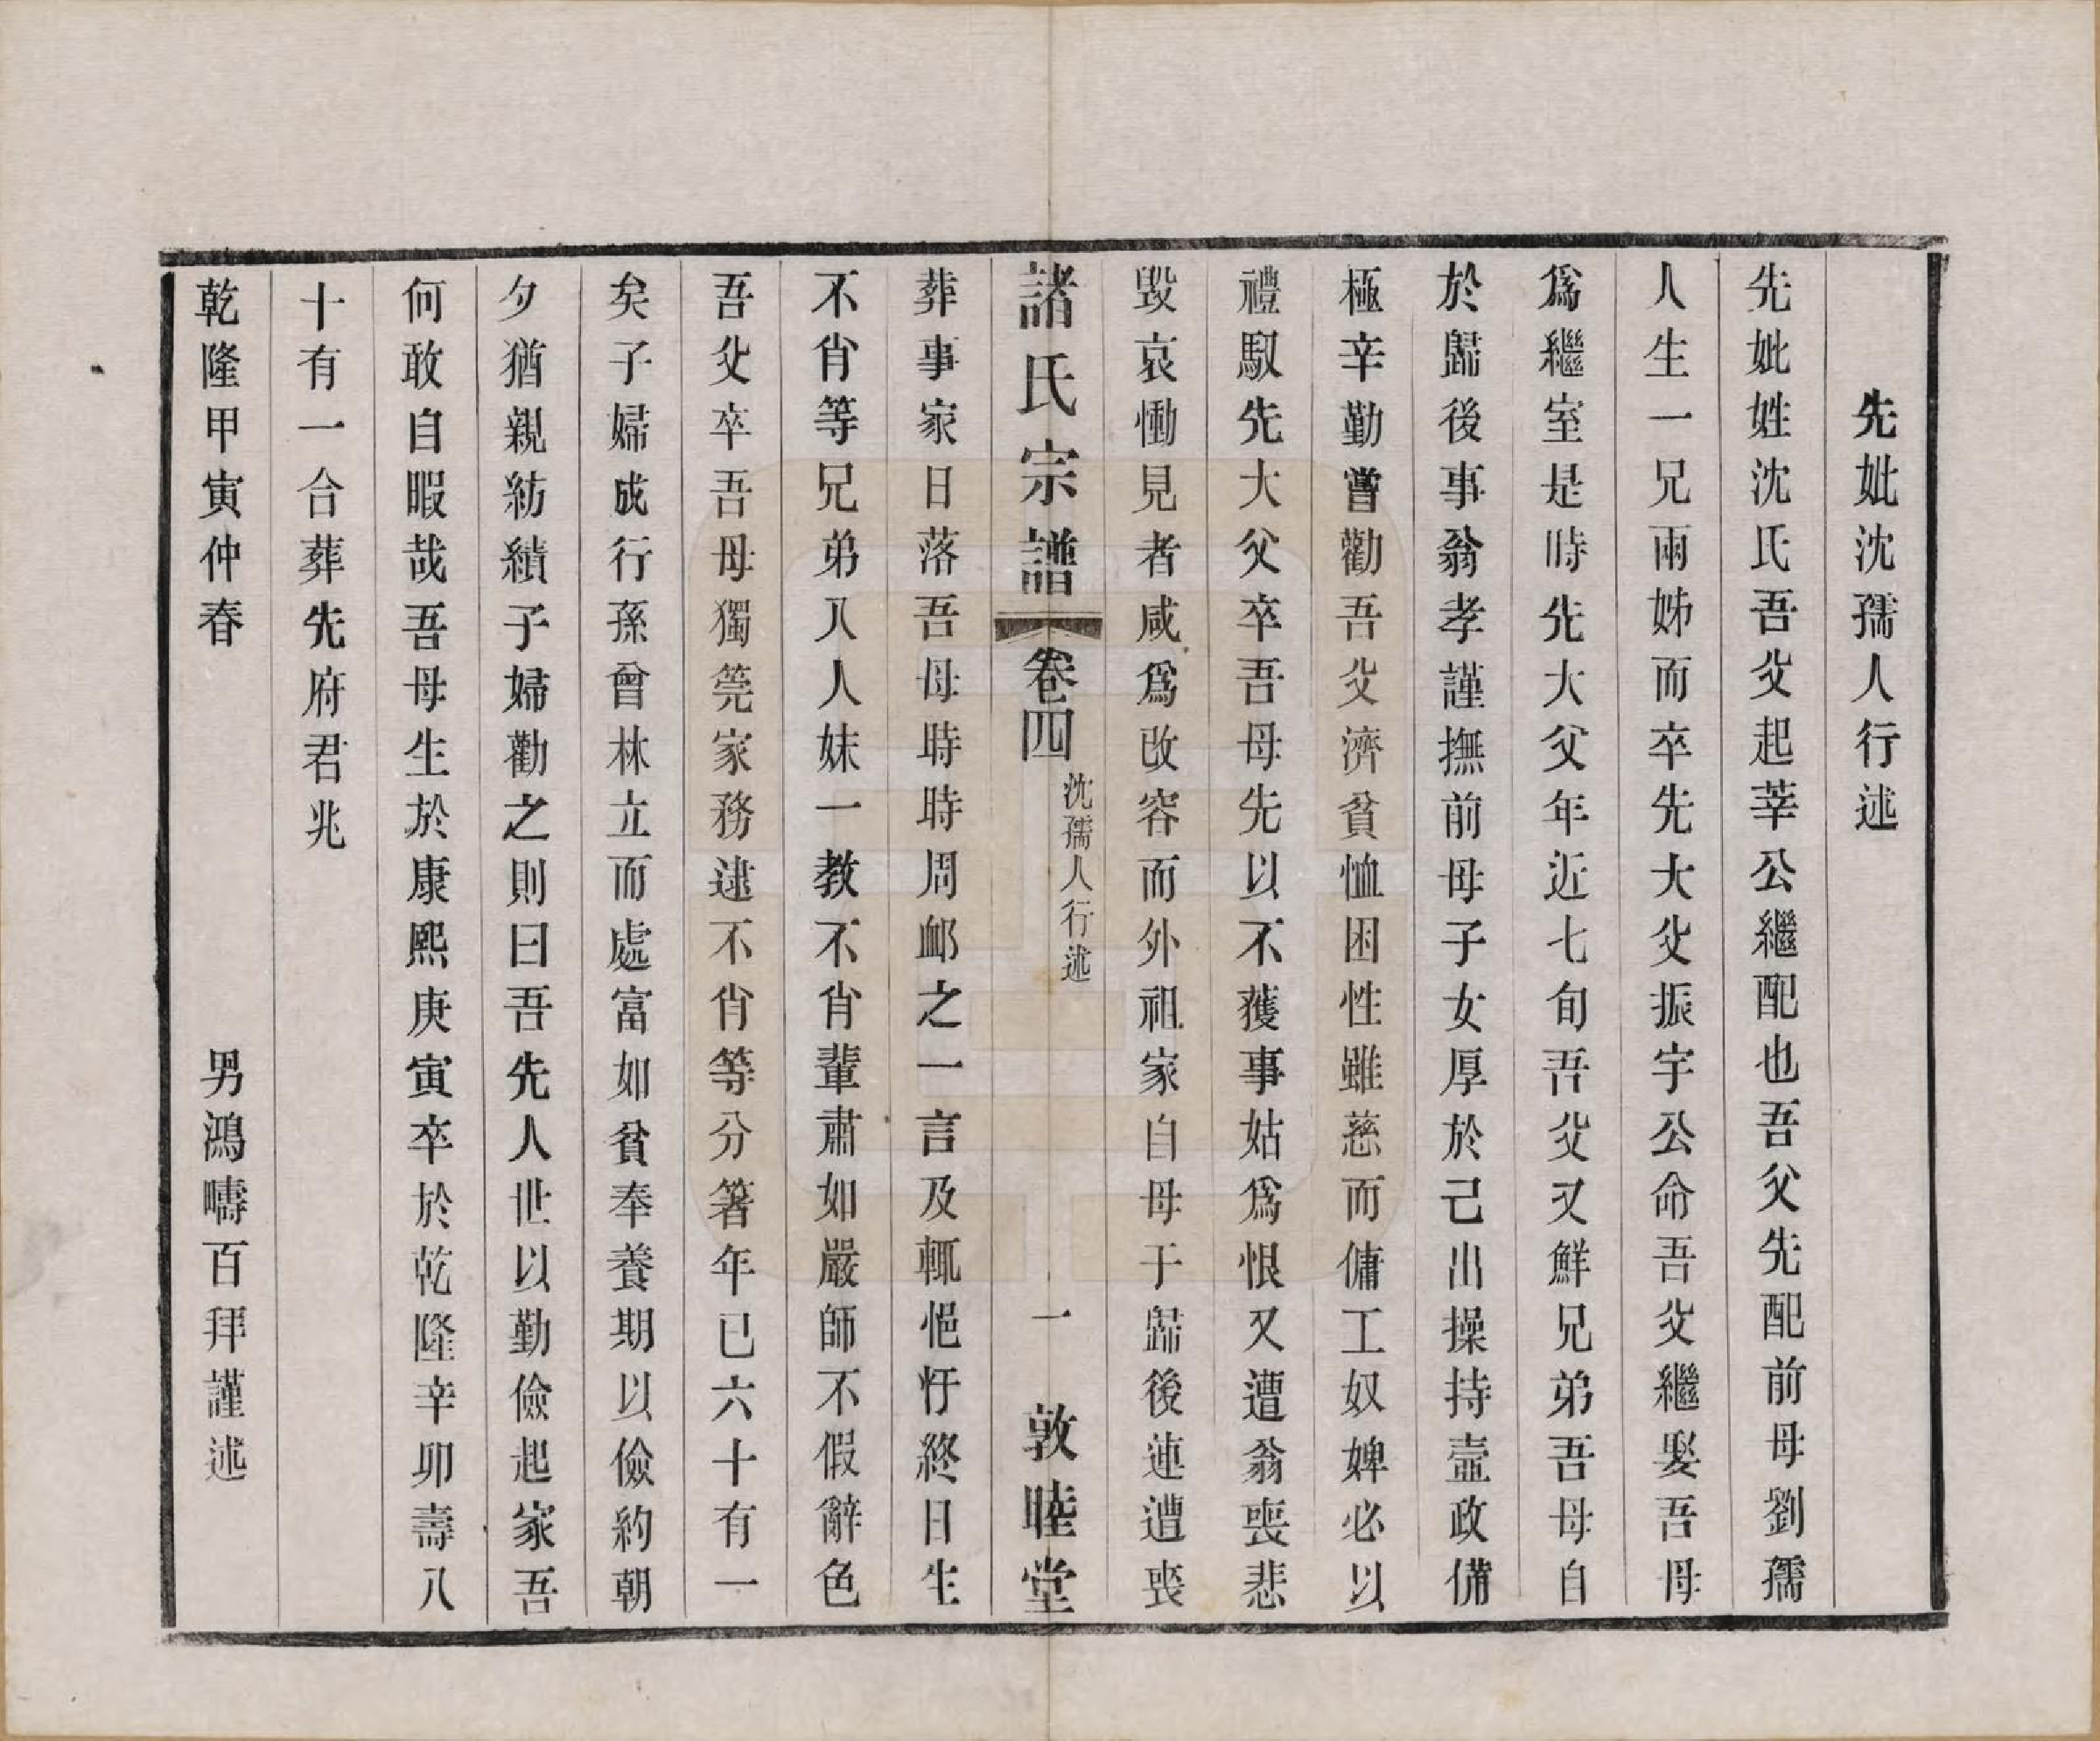 先妣沈孺人行述
先妣姓沈氏吾父起莘公繼配也吾父先配前母劉孺
人生一兄兩姊而卒先大父振宇公命吾父繼娶吾母
爲繼室是時先大父年近七旬吾父又鮮兄弟吾母自
於歸後事翁孝謹撫前母子女厚於己出操持壼政備
極辛勤嘗勸吾父濟貧恤困性雖慈而傭工奴婢必以
禮馭先大父卒吾母先以不獲事姑爲恨又遭翁喪悲
毀哀慟見者咸爲改容而外祖家自母于歸後連遭喪
諸氏宗譜 卷四 沈孺人行述 一 敦睦堂
葬事家日落吾母時時周卹之一言及輒悒忬終日生
不肖等兄弟八人妹一教不肖輩肅如嚴師不假辭色
吾父卒吾母獨筦家務逮不肖等分箸年已六十有一
矣子婦成行孫曾林立而處富如貧奉養期以儉約朝
夕猶親紡績子婦勸之則曰吾先人世以勤儉起家吾
何敢自暇哉吾母生於康熙庚寅卒於乾隆辛卯壽八
十有一合葬先府君兆
乾隆甲寅仲春 男鴻疇百拜謹述